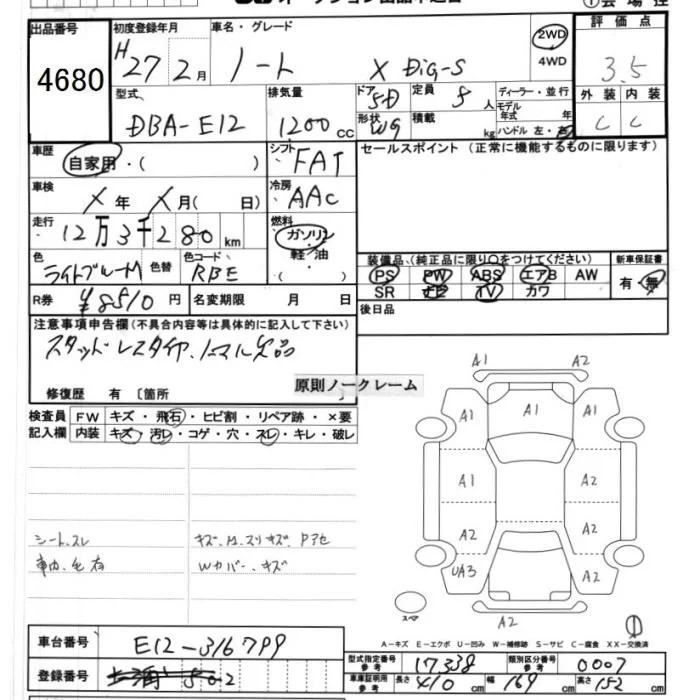 出品番号
4680
初度登録年月
H27年2月
車名・グレード
ノート X DiG-S
2WD
4WD
評価点
3.5
外装 内装
C C
型式
DBA-E12
排気量
1200 CC
ドア 5D
形状 WG
定員 5 人
積載 kg
ディーラー・並行
モデル年式 年
ハンドル 左・右
車歴
自家用・( )
シフト
FAT
車検
X年 X月( 日)
冷房
AAC
走行
12万3千280 km
燃料
ガソリン
軽油
色
ライトブルーM
色替
色コード
RBE
R券 ¥8510円
名変期限 月 日
セールスポイント(正常に機能するものに限ります)
装備品(純正品に限り○をつけてください)
PS PW ABS エアB AW
SR ナビ TV カワ
新車保証書
有・無
後日品
注意事項申告欄(不具合内容等は具体的に記入して下さい)
スタッドレスタイヤ、ノーマル欠品
修復歴 有〔箇所 〕
原則ノークレーム
検査員記入欄
FW キズ・飛石・ヒビ割・リペア跡・×要
内装 キズ・汚レ・コゲ・穴・スレ・キレ・破レ
シート、スレ
車内、毛有
キズ、
Wカバー、キズ
A1 A2
A1 A1 A2
A1 A2
A2 A2
UA3 A2
A2
スペア
A-キズ E-エクボ U-凹み W-補修跡 S-サビ C-腐食 XX-交換済
車台番号 E12-316799
登録番号
型式指定番号参考 17338
類別区分番号参考 0007
車庫証明用参考 長さ 410 cm 幅 169 cm 高さ 152 cm